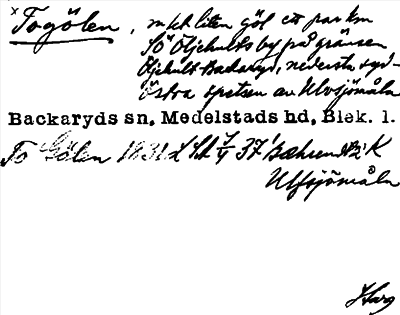 x Togölen, mkt liten göl ett par km
SÖ Öljehults by på gränsen
Öljehult-Backaryd, nedersta syd-
östra spetsen av Ulvsjömåln
Backaryds sn, Medelstads hd, Blek. l.
To Gölen 1831 37 K
Ulfsjömåln